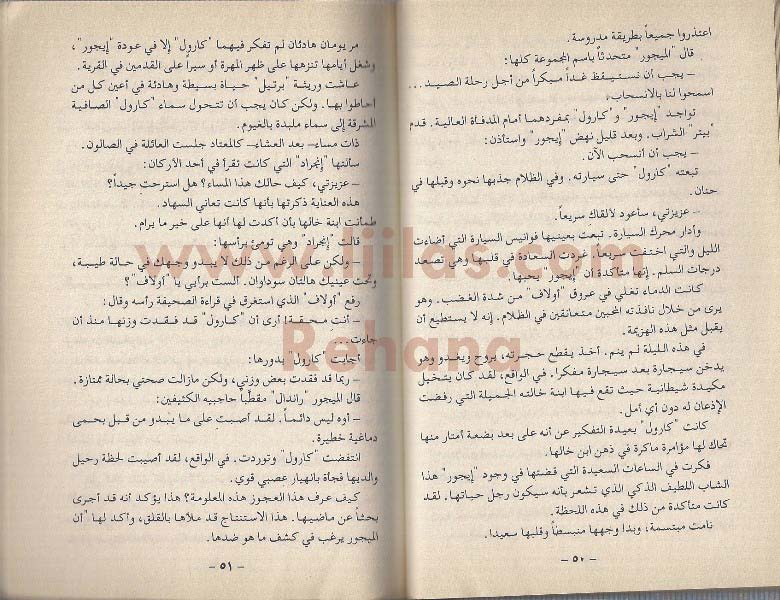 اعتذروا جميعاً بطريقة مدروسة.
قال "الميجور" متحدثاً باسم المجموعة كلها:
– يجب أن نستيقظ غداً مبكراً من أجل رحلة الصيد...
اسمحوا لنا بالانسحاب.
تواجد "إيجور" و"كارول" بمفردهما أمام المدفأة العالية. قدم
"بيتر" الشراب. وبعد قليل نهض "إيجور" واستأذن:
– يجب أن أنسحب الآن.
تبعته "كارول" حتى سيارته. وفي الظلام جذبها نحوه وقبلها في
حنان.
– عزيزتي، سأعود لألقاك سريعاً.
وأدار محرك السيارة. تبعت بعينيها فوانيس السيارة التي أضاءت
الليل والتي اختفت سريعاً. غردت السعادة في قلبها وهي تصعد
درجات السلم. إنها متأكدة أن "إيجور" يحبها.
كانت الدماء تغلي في عروق "أولاف" من شدة الغضب. وهو
يرى من خلال نافذته المحبين متعانقين في الظلام. إنه لا يستطيع أن
يقبل مثل هذه الهزيمة.
في هذه الليلة لم ينم. أخذ يقطع حجرته، يروح ويغدو وهو
يدخن سيجارة بعد سيجارة مفكراً. في الواقع، لقد كان يتخيل
مكيدة شيطانية حيث تقع فيها ابنة خالته الجميلة التي رفضت
الإذعان له دون أي أمل.
كانت "كارول" بعيدة التفكير عن أنه على بعد بضعة أمتار منها
تحاك لها مؤامرة ماكرة في ذهن ابن خالها.
فكرت في الساعات السعيدة التي قضتها في وجود "إيجور" هذا
الشاب اللطيف الذكي الذي تشعر بأنه سيكون رجل حياتها. لقد
كانت متأكدة من ذلك في هذه اللحظة.
نامت مبتسمة، وبدا وجهها منبسطاً وقلبها سعيدا.
– ٥٠ –
مر يومان هادئان لم تفكر فيهما "كارول" إلا في عودة "إيجور"،
وشغل أيامها تنزهها على ظهر المهرة أو سيراً على القدمين في القرية.
عاشت وريثة "برتيل" حياة بسيطة وهادئة في أعين كل من
أحاطوا بها. ولكن كان يجب أن تتحول سماء "كارول" الصافية
المشرقة إلى سماء ملبدة بالغيوم.
ذات مساء– بعد العشاء– كالمعتاد جلست العائلة في الصالون.
سألتها "إنجراد" التي كانت تقرأ في أحد الأركان:
– عزيزتي، كيف حالك هذا المساء؟ هل استرحت جيداً؟
هذه العناية ذكرتها بأنها كانت تعاني السهاد.
طمأنت ابنة خالها بأن أكدت لها أنها على خير ما يرام.
قالت "إنجراد" وهي تومئ برأسها:
– ولكن على الرغم من ذلك لا يبدو وجهك في حالة طيبة،
وتحت عينيك هالتان سوداوان. ألست برأيي يا "أولاف"؟
رفع "أولاف" الذي استغرق في قراءة الصحيفة رأسه وقال:
– أنت محقة! أرى أن "كارول" قد فقدت وزنها منذ أن
جاءت...
أجابت "كارول" بدورها:
– ربما قد فقدت بعض وزني، ولكن مازالت صحتي بحالة ممتازة.
قال الميجور "راندال" مقطباً حاجبيه الكثيفين:
– أوه ليس دائماً. لقد أصبت على ما يبدو من قبل بحمى
دماغية خطيرة.
انتفضت "كارول" وتوردت. في الواقع، لقد أصيبت لحظة رحيل
والديها فجأة بانهيار عصبي قوي.
كيف عرف هذا العجوز هذه المعلومة؟ هذا يؤكد أنه قد أجرى
بحثاً عن ماضيها. هذا الاستنتاج قد ملأها بالقلق، وأكد لها "أن
الميجور يرغب في كشف ما هو ضدها.
– ٥١ –
www.liilas.com
Rehana